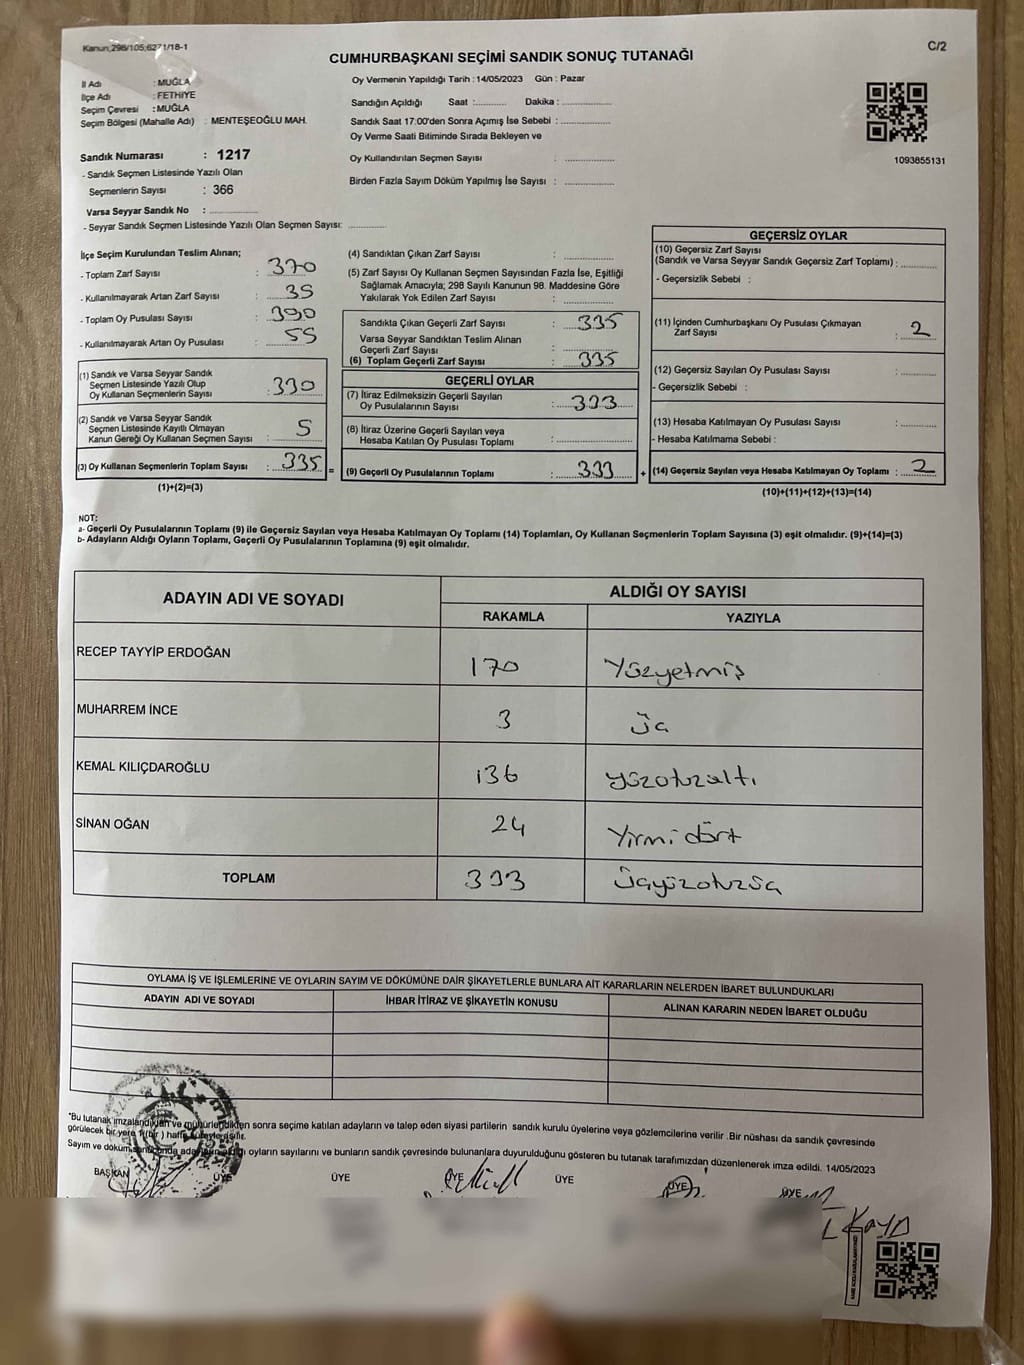 Kanun;298/105;6271/18-1
C/2
CUMHURBAŞKANI SEÇİMİ SANDIK SONUÇ TUTANAĞI
İl Adı : MUĞLA
İlçe Adı : FETHİYE
Seçim Çevresi : MUĞLA
Seçim Bölgesi (Mahalle Adı) : MENTEŞEOĞLU MAH.
Oy Vermenin Yapıldığı Tarih : 14/05/2023 Gün : Pazar
Sandığın Açıldığı Saat :.......... Dakika : ..............
Sandık Saat 17:00'den Sonra Açımış İse Sebebi : ..............
Oy Verme Saati Bitiminde Sırada Bekleyen ve
Oy Kullandırılan Seçmen Sayısı : ..............
Birden Fazla Sayım Döküm Yapılmış İse Sayısı : ..............
1093855131
Sandık Numarası : 1217
- Sandık Seçmen Listesinde Yazılı Olan
Seçmenlerin Sayısı : 366
Varsa Seyyar Sandık No : ..............
- Seyyar Sandık Seçmen Listesinde Yazılı Olan Seçmen Sayısı: ............
İlçe Seçim Kurulundan Teslim Alınan;
- Toplam Zarf Sayısı : 370
- Kullanılmayarak Artan Zarf Sayısı : 35
- Toplam Oy Pusulası Sayısı : 390
- Kullanılmayarak Artan Oy Pusulası : 55
(1) Sandık ve Varsa Seyyar Sandık
Seçmen Listesinde Yazılı Olup
Oy Kullanan Seçmenlerin Sayısı : 330
(2) Sandık ve Varsa Seyyar Sandık
Seçmen Listesinde Kayıtlı Olmayan
Kanun Gereği Oy Kullanan Seçmen Sayısı : 5
(3) Oy Kullanan Seçmenlerin Toplam Sayısı : 335 =
(1)+(2)=(3)
(4) Sandıktan Çıkan Zarf Sayısı : ..............
(5) Zarf Sayısı Oy Kullanan Seçmen Sayısından Fazla İse, Eşitliği
Sağlamak Amacıyla; 298 Sayılı Kanunun 98. Maddesine Göre
Yakılarak Yok Edilen Zarf Sayısı : ..............
Sandıkta Çıkan Geçerli Zarf Sayısı : 335
Varsa Seyyar Sandıktan Teslim Alınan
Geçerli Zarf Sayısı : ..............
(6) Toplam Geçerli Zarf Sayısı : 335
GEÇERLİ OYLAR
(7) İtiraz Edilmeksizin Geçerli Sayılan
Oy Pusulalarının Sayısı : 333
(8) İtiraz Üzerine Geçerli Sayılan veya
Hesaba Katılan Oy Pusulası Toplamı : ..............
(9) Geçerli Oy Pusulalarının Toplamı : 333 +
GEÇERSİZ OYLAR
(10) Geçersiz Zarf Sayısı
(Sandık ve Varsa Seyyar Sandık Geçersiz Zarf Toplamı) : ..........
- Geçersizlik Sebebi :
(11) İçinden Cumhurbaşkanı Oy Pusulası Çıkmayan
Zarf Sayısı : 2
(12) Geçersiz Sayılan Oy Pusulası Sayısı : ..........
- Geçersizlik Sebebi :
(13) Hesaba Katılmayan Oy Pusulası Sayısı : ..........
- Hesaba Katılmama Sebebi :
(14) Geçersiz Sayılan veya Hesaba Katılmayan Oy Toplamı : 2
(10)+(11)+(12)+(13)=(14)
NOT:
a- Geçerli Oy Pusulalarının Toplamı (9) ile Geçersiz Sayılan veya Hesaba Katılmayan Oy Toplamı (14) Toplamları, Oy Kullanan Seçmenlerin Toplam Sayısına (3) eşit olmalıdır. (9)+(14)=(3)
b- Adayların Aldığı Oyların Toplamı, Geçerli Oy Pusulalarının Toplamına (9) eşit olmalıdır.
ADAYIN ADI VE SOYADI
ALDIĞI OY SAYISI
RAKAMLA YAZIYLA
RECEP TAYYİP ERDOĞAN 170 Yüzyetmiş
MUHARREM İNCE 3 üç
KEMAL KILIÇDAROĞLU 136 yüzotuzaltı
SİNAN OĞAN 24 Yirmi dört
TOPLAM 333 üçyüzotuzüç
OYLAMA İŞ VE İŞLEMLERİNE VE OYLARIN SAYIM VE DÖKÜMÜNE DAİR ŞİKAYETLERLE BUNLARA AİT KARARLARIN NELERDEN İBARET BULUNDUKLARI
ADAYIN ADI VE SOYADI İHBAR İTİRAZ VE ŞİKAYETİN KONUSU ALINAN KARARIN NEDEN İBARET OLDUĞU
"Bu tutanak imzalandıktan ve mühürlendikten sonra seçime katılan adayların ve talep eden siyasi partilerin sandık kurulu üyelerine veya gözlemcilerine verilir .Bir nüshası da sandık çevresinde
görülecek bir yere 1 (bir ) hafta
Sayım ve döküm oyların sayılarını ve bunların sandık çevresinde bulunanlara duyurulduğunu gösteren bu tutanak tarafımızdan düzenlenerek imza edildi. 14/05/2023
BAŞKAN ÜYE ÜYE ÜYE ÜYE ÜYE ÜYE